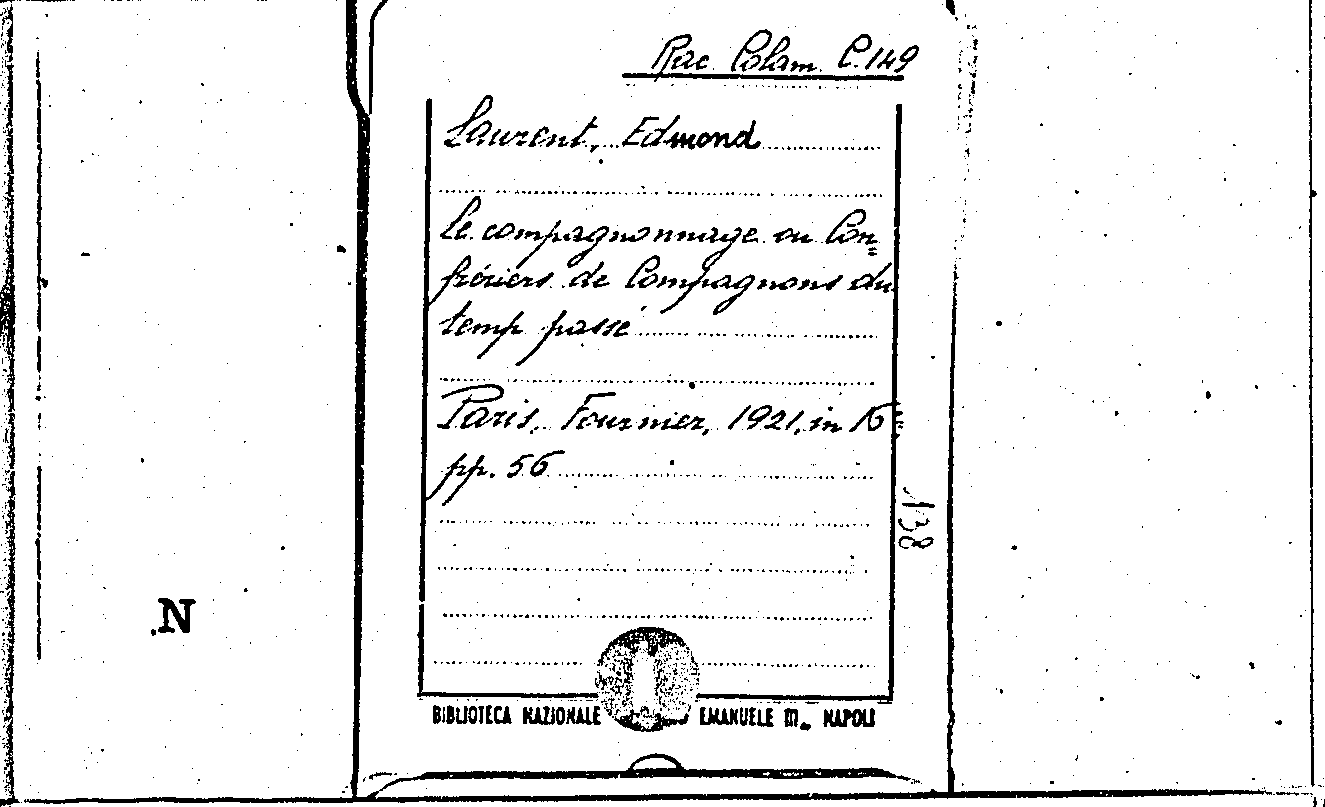 Rac Colam C.149
Laurent, Edmond
Le compagnonnage ou Con=
frériers de Compagnons du
temp passé
Paris, Fournier, 1921, in 16°
pp. 56
138
N
BIBLIOTECA NAZIONALE EMANUELE III_ NAPOLI